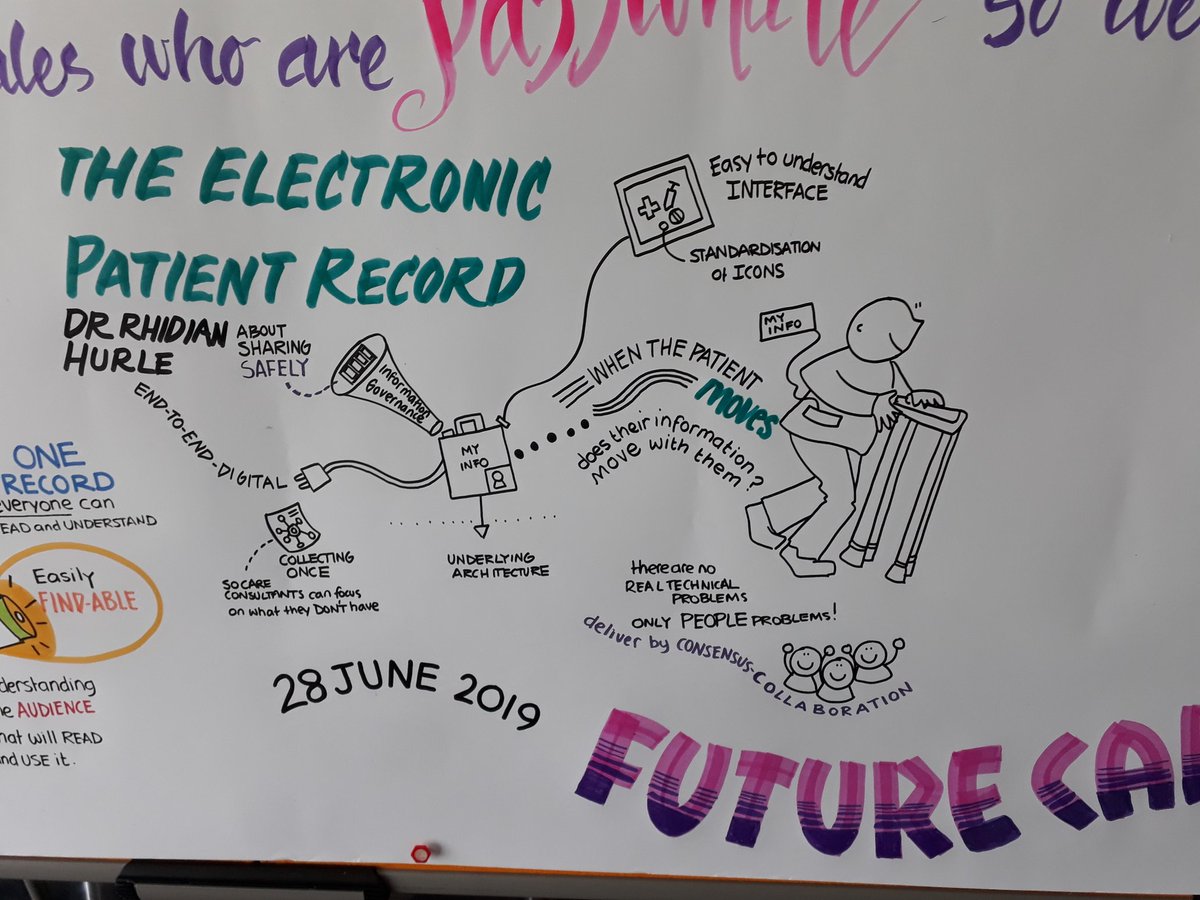 who are passionate so we
THE ELECTRONIC
PATIENT RECORD
DR RHIDIAN
HURLE
ABOUT
SHARING
SAFELY
Information
Governance
END-TO-END-DIGITAL
MY
INFO
Easy to understand
INTERFACE
STANDARDISATION
of ICONS
WHEN THE PATIENT
moves
does their information
MOVE WITH them?
MY
INFO
COLLECTING
ONCE
SO CARE
CONSULTANTS can focus
on what they DON'T have
UNDERLYING
ARCHITECTURE
there are no
REAL TECHNICAL
PROBLEMS
ONLY PEOPLE PROBLEMS!
deliver by CONSENSUS-COLLABORATION
ONE
RECORD
everyone can
READ and UNDERSTAND
Easily
FIND-ABLE
AUDIENCE
will READ
and USE it.
28 JUNE 2019
FUTURE